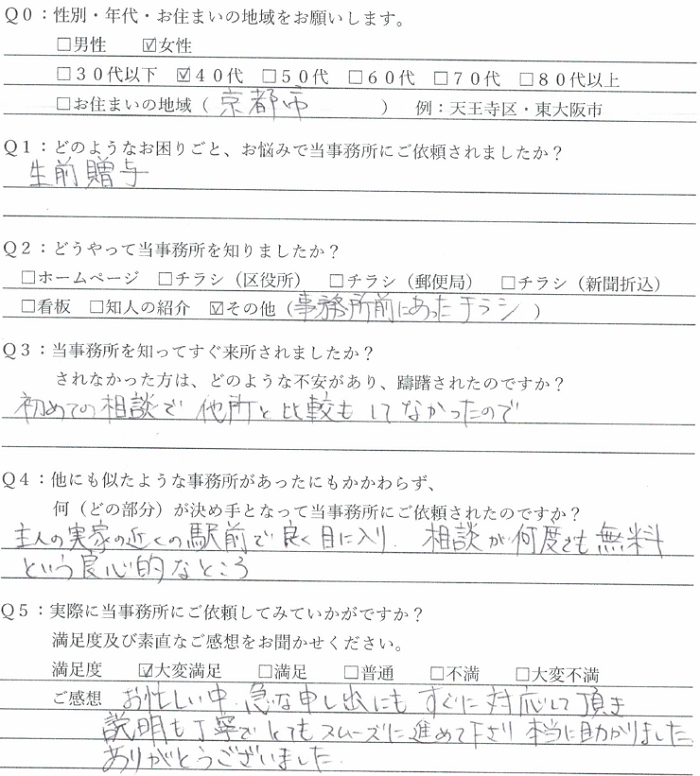 Q0：性別・年代・お住まいの地域をお願いします。
□男性　☑女性
□30代以下　☑40代　□50代　□60代　□70代　□80代以上
□お住まいの地域（ 京都市 ）　例：天王寺区・東大阪市
Q1：どのようなお困りごと、お悩みで当事務所にご依頼されましたか？
生前贈与
Q2：どうやって当事務所を知りましたか？
□ホームページ　□チラシ（区役所）　□チラシ（郵便局）　□チラシ（新聞折込）
□看板　□知人の紹介　☑その他（事務所前にあったチラシ）
Q3：当事務所を知ってすぐ来所されましたか？
されなかった方は、どのような不安があり、躊躇されたのですか？
初めての相談で 他所と比較も してなかったので
Q4：他にも似たような事務所があったにもかかわらず、
何（どの部分）が決め手となって当事務所にご依頼されたのですか？
主人の実家の近くの駅前で良く目に入り、相談が何度でも無料
という良心的なところ
Q5：実際に当事務所にご依頼してみていかがですか？
満足度及び素直なご感想をお聞かせください。
満足度　☑大変満足　□満足　□普通　□不満　□大変不満
ご感想　お忙しい中、急な申し出にも すぐに対応して頂き
説明も丁寧で とてもスムーズに進めて下さり 本当に助かりました。
ありがとうございました。